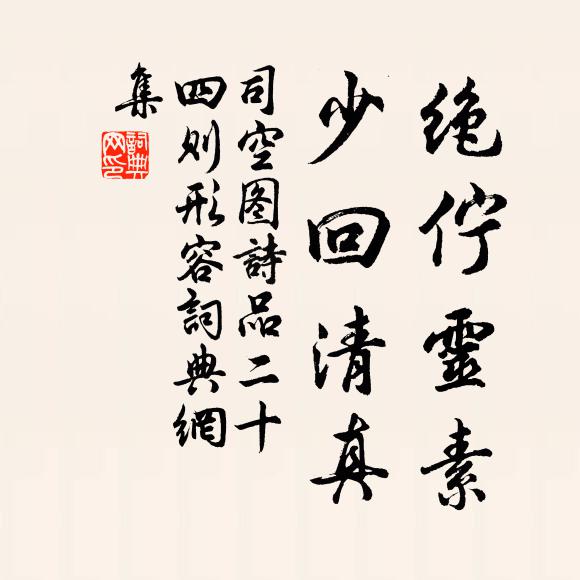 绝伫靈素
少回清真
司空图詩品二十
四则形容詞典網
集
詞典
网印